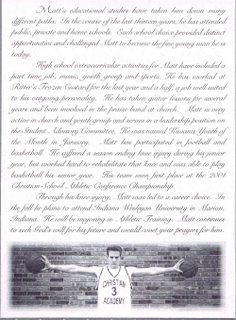 Matt's educational studies have taken him down many
different paths. In the course of the last thirteen years, he has attended
public, private and home schools. Each school choice provided distinct
opportunities and challenged Matt to become the fine young man he is
today.
High school extracurricular activities for Matt have included a
part time job, music, youth group and sports. He has worked at
Ritter's Frozen Custard for the last year and a half, a job well suited
to his outgoing personality. He has taken guitar lessons for several
years and been involved in the praise band at church. Matt is very
active in church and youth group and serves in a leadership position on
the Student Advisory Committee. He was named Kiwanis Youth of
the Month in January. Matt has participated in football and
basketball. He suffered a season ending knee injury during his junior
year, but worked hard to rehabilitate that knee and was able to play
basketball his senior year. His team won first place at the 2001
Christian School Athletic Conference Championship.
Through his knee injury, Matt was led to a career choice. In
the fall he plans to attend Indiana Wesleyan University in Marion,
Indiana. He will be majoring in Athletic Training. Matt continues
to seek God's will for his future and would covet your prayers for him.
CHRISTIAN
3
ACADEMY